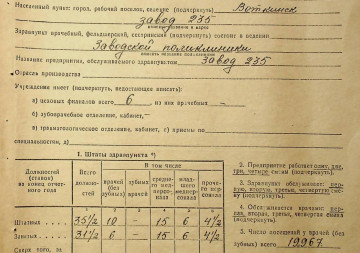 Населенный пункт: город, рабочий поселок, селение (подчеркнуть) Воткинск
завод 235
Здравпункт врачебный, фельдшерский, сестринский (подчеркнуть) состоит в ведении
Заводской поликлиники
Название предприятия, обслуживаемого здравпунктом завод 235
Отрасль производства
Учреждение имеет (подчеркнуть, недостающее вписать):
а) цеховых филиалов всего 6 из них врачебных –
б) зубоврачебное отделение, кабинет, –
в) травматологическое отделение, кабинет, г) приемы по
специальностям, д)
1. Штаты здравпункта *)
Должностей (ставок) на конец отчетного года
Всего должностей
В том числе
врачей (без зубных)
зубных врачей
среднего медперсонала
младшего медперсонала
прочего персонала
1 2 3 4 5 6
Штатных 35½ 10 – 15 6 4½
Занятых 31½ 6 – 15 6 4½
Сверх того, за
2. Предприятие работает одну, две,
три, четыре смены (подчеркнуть).
3. Здравпункт обслуживает: первую, вторую, третью, четвертую смену
(подчеркнуть).
4. Обслуживается врачами: первая, вторая, третья, четвертая смена
(подчеркнуть).
5. Число посещений у врачей (без
зубных) всего 19967